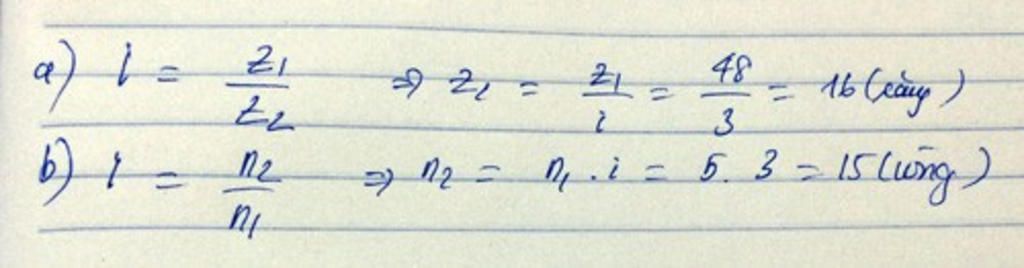 a) i = z1/z2 ⇒ z2 = z1/i = 48/3 = 16 (răng)
b) i = n2/n1 ⇒ n2 = n1 . i = 5 . 3 = 15 (vòng)